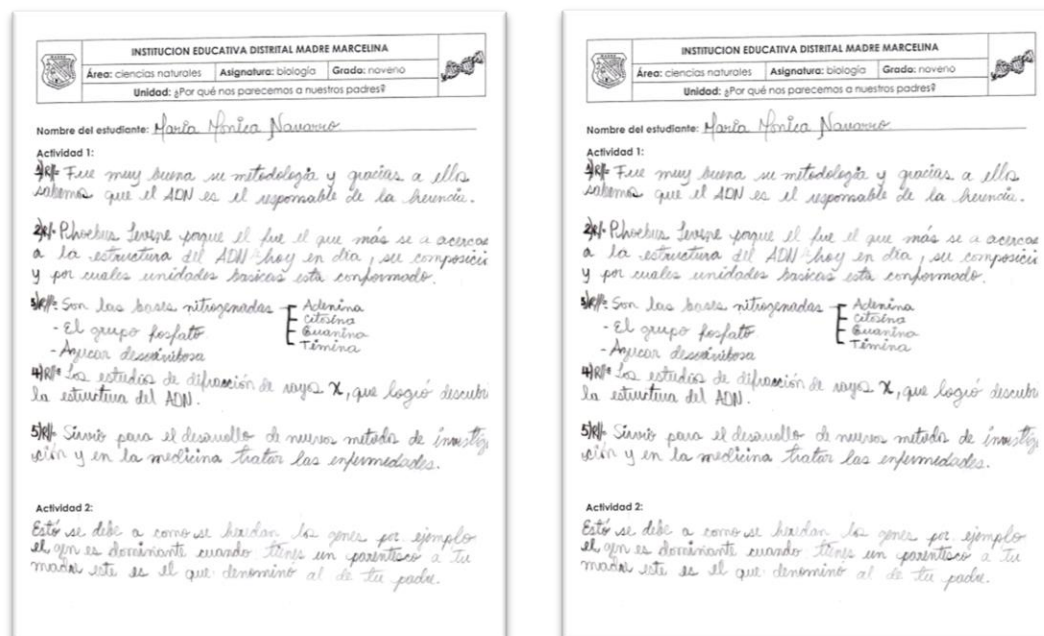 INSTITUCION EDUCATIVA DISTRITAL MADRE MARCELINA
Área: ciencias naturales Asignatura: biología Grado: noveno
Unidad: ¿Por qué nos parecemos a nuestros padres?
Nombre del estudiante: María Monica Navarro
Actividad 1:
1)R/= Fue muy buena su metodología y gracias a ellos
sabemos que el ADN es el responsable de la herencia.
2)R/= Phoebus Levene porque el fue el que más se a acercad
a la estructura del ADN hoy en día, su composició
y por cuales unidades basicas esta conformado.
3)R/= Son las bases nitrogenadas Adenina
Citosina
- El grupo fosfato Guanina
Timina
- Azucar desoxirribosa
4)R/= Los estudios de difracción de rayos X, que logró descubri
la estructura del ADN.
5)R/= Sirvió para el desarrollo de nuevos metodos de investiga
ción y en la medicina tratar las enfermedades.
Actividad 2:
Estó se debe a como se heredan los genes por ejemplo
el gen es dominante cuando tienes un parentesco a tu
madre este es el que denominó al de tu padre.
INSTITUCION EDUCATIVA DISTRITAL MADRE MARCELINA
Área: ciencias naturales Asignatura: biología Grado: noveno
Unidad: ¿Por qué nos parecemos a nuestros padres?
Nombre del estudiante: María Monica Navarro
Actividad 1:
1)R/= Fue muy buena su metodología y gracias a ellos
sabemos que el ADN es el responsable de la herencia.
2)R/= Phoebus Levene porque el fue el que más se a acercad
a la estructura del ADN hoy en día, su composició
y por cuales unidades basicas esta conformado.
3)R/= Son las bases nitrogenadas Adenina
Citosina
- El grupo fosfato Guanina
Timina
- Azucar desoxirribosa
4)R/= Los estudios de difracción de rayos X, que logró descubri
la estructura del ADN.
5)R/= Sirvió para el desarrollo de nuevos metodos de investiga
ción y en la medicina tratar las enfermedades.
Actividad 2:
Estó se debe a como se heredan los genes por ejemplo
el gen es dominante cuando tienes un parentesco a tu
madre este es el que denominó al de tu padre.